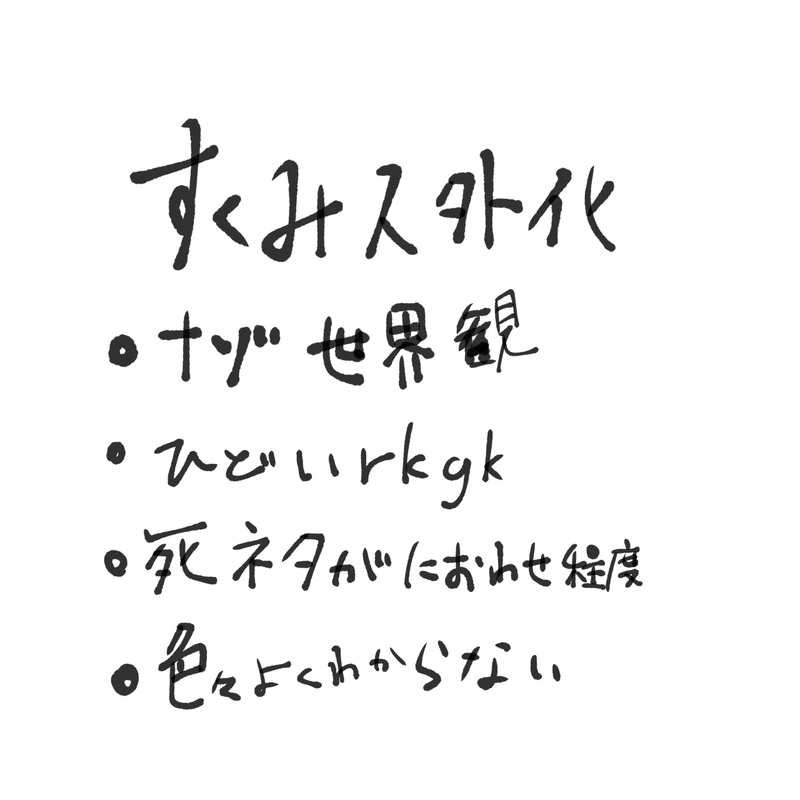 すくみス外化
● ナゾ世界観
● ひどいrkgk
● 死ネタがにおわせ程度
● 色々よくわからない